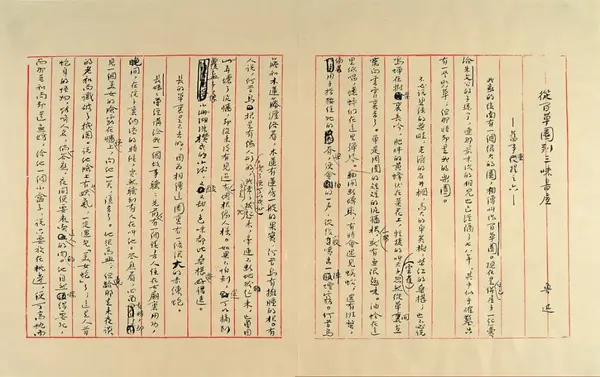 ——從百草園到三味書屋
——舊事重提之六——
魯迅
我家的後面有一個很大的園,相傳叫作百草園。現在是早已併屋子一起賣
給朱文公的子孫了,連那最末次的相見也已經隔了七八年,其中似乎確鑿只
有一些野草;但那時却是我的樂園。
不必說碧綠的菜畦,光滑的石井欄,高大的皂莢樹,紫紅的桑椹;也不必說
鳴蟬在樹葉裏長吟,肥胖的黃蜂伏在菜花上,輕捷的叫天子忽然從草間直
竄向雲霄裏去了。單是周圍的短短的泥牆根一帶,就有無限趣味。油蛉在這
里低唱,蟋蟀們在這里彈琴。翻開斷磚來,有時會遇見蜈蚣;還有斑蝥,
倘若用手指按住牠的脊梁,便會拍的一聲,從後竅噴出一陣煙霧。何首烏
藤和木蓮藤纏絡着,木蓮有蓮房一般的果實,何首烏有擁腫的根。有
人說,何首烏根是有像人形的,吃了便可以成仙,我於是常常拔牠起來,牽連不斷地拔起來,也曾因
此弄壞了泥牆,却從來沒有見過有一塊根像人樣。如果不怕刺,還可以摘到
覆盆子,像小珊瑚珠攢成的小球,又酸又甜,色味都比桑椹要好得遠。
長的草裏是不去的,因為相傳這園裏有一條很大的赤練蛇。
長媽媽曾經講給我一個故事聽:先前,有一個讀書人住在古廟裏用功,
晚間,在院子裏納涼的時候,突然聽到有人在叫他。答應着,四面看時,却
見一個美女的臉露在牆頭上,向他一笑,隱去了。他很高興;但竟給那走來夜談
的老和尚識破了機關。說他臉上有些妖氣,一定遇見「美女蛇」了;這是人首
蛇身的怪物,能喚人名,倘一答應,夜間便要來吃這人的肉的。他自然嚇得要死,
而那老和尚却道無妨,給他一個小盒子,說只要放在枕邊,便可高枕而